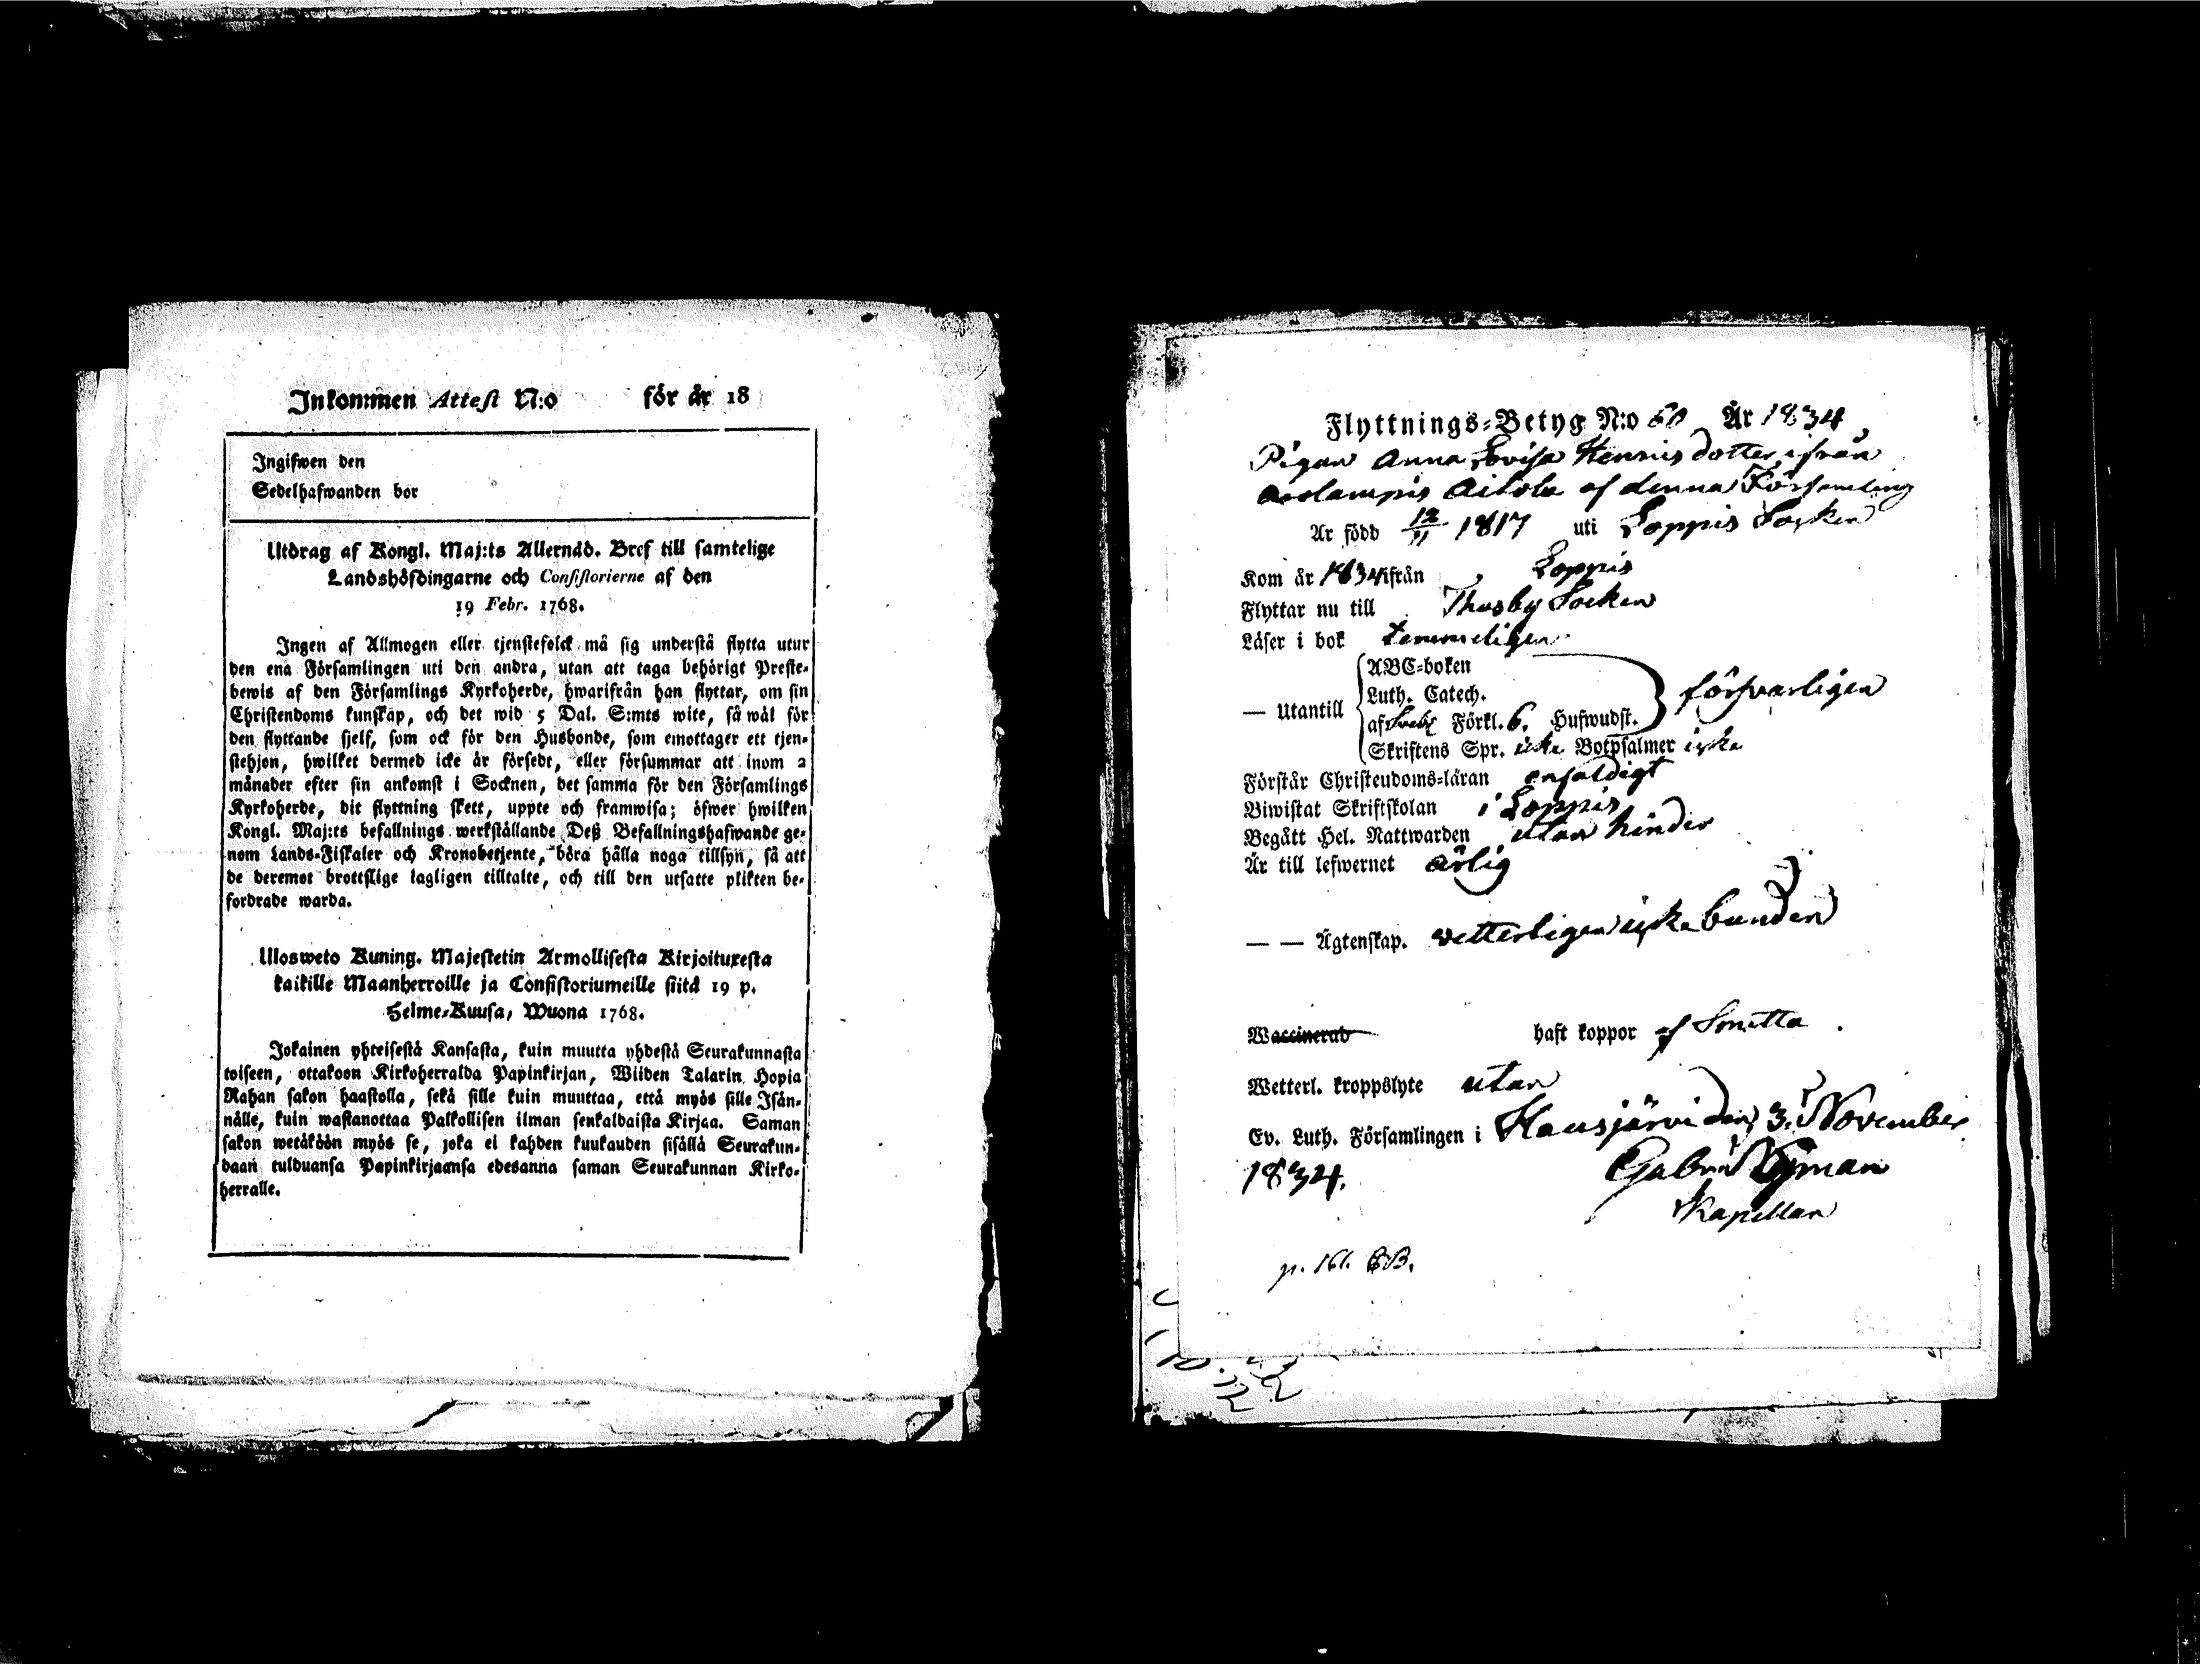 Inkommen Attest N:o för år 18
Ingifwen den
Sedelhafwanden bor
Utdrag af Kongl. Maj:ts Allernåd. Bref till samtelige
Landshöfdingarne och Consistorierne af den
19 Febr. 1768.
Ingen af Allmogen eller tjenstefolck må sig understå flytta utur
den ena Församlingen uti den andra, utan att taga behörigt Preste-
bewis af den Församlings Kyrkoherde, hwarifrån han flyttar, om sin
Christendoms kunskap, och det wid 5 Dal. S:mts wite, så wäl för
den flyttande sjelf, som ock för den Husbonde, som emottager ett tjen-
stehjon, hwilket dermed icke är försedt, eller försummar att inom 2
månader efter sin ankomst i Socknen, det samma för den Församlings
Kyrkoherde, dit flyttning skett, uppte och framwisa; öfwer hwilken
Kongl. Maj:ts befallnings werkställande Deß Befallningshafwande ge-
nom Lands-Fiskaler och Kronobetjente, böra hålla noga tillsyn, så att
de deremot brottslige lagligen tilltalte, och till den utsatte plikten be-
fordrade warda.
Ulosweto Kuning. Majestetin Armollisesta Kirjoituxesta
kaikille Maanherroille ja Consistoriumeille siitä 19 p.
Helme-Kuusa, Wuona 1768.
Jokainen yhteisestä Kansasta, kuin muutta yhdestä Seurakunnasta
toiseen, ottakoon Kirkoherralda Papinkirjan, Wiiden Talarin Hopia
Rahan sakon haastolla, sekä sille kuin muuttaa, että myös sille Isän-
nälle, kuin wastanottaa Palkollisen ilman senkaldaista Kirjaa. Saman
sakon wetäköön myös se, joka ei kahden kuukauden sisällä Seurakun-
daan tulduansa Papinkirjaansa edesanna saman Seurakunnan Kirko-
herralle.
Flyttnings-Betyg N:o 60 År 1834
Pigan Anna Lovisa Hennis dotter ifrån
Aitola af denna Församling
Är född 13/11 1817 uti Loppis Socken
Kom år 1834 ifrån Loppis
Flyttar nu till Thusby Socken
Läser i bok temmeligen
ABC-boken
Luth. Catech.
— Utantill försvarligen
af Sveb. Förkl. 6. Hufwudst.
Skriftens Spr. icke Botpsalmer icke
Förstår Christendoms-läran enfaldigt
Biwistat Skriftskolan i Loppis
Begått Hel. Nattwarden utan hinder
Är till lefwernet ärlig
— — Ägtenskap. vetterligen icke bunden
Waccinerad haft koppor af Smitta.
Wetterl. kroppslyte utan
Ev. Luth. Församlingen i Hausjärvi den 3. November
1834. Gabriel Nyman
Kapellan
p. 161.